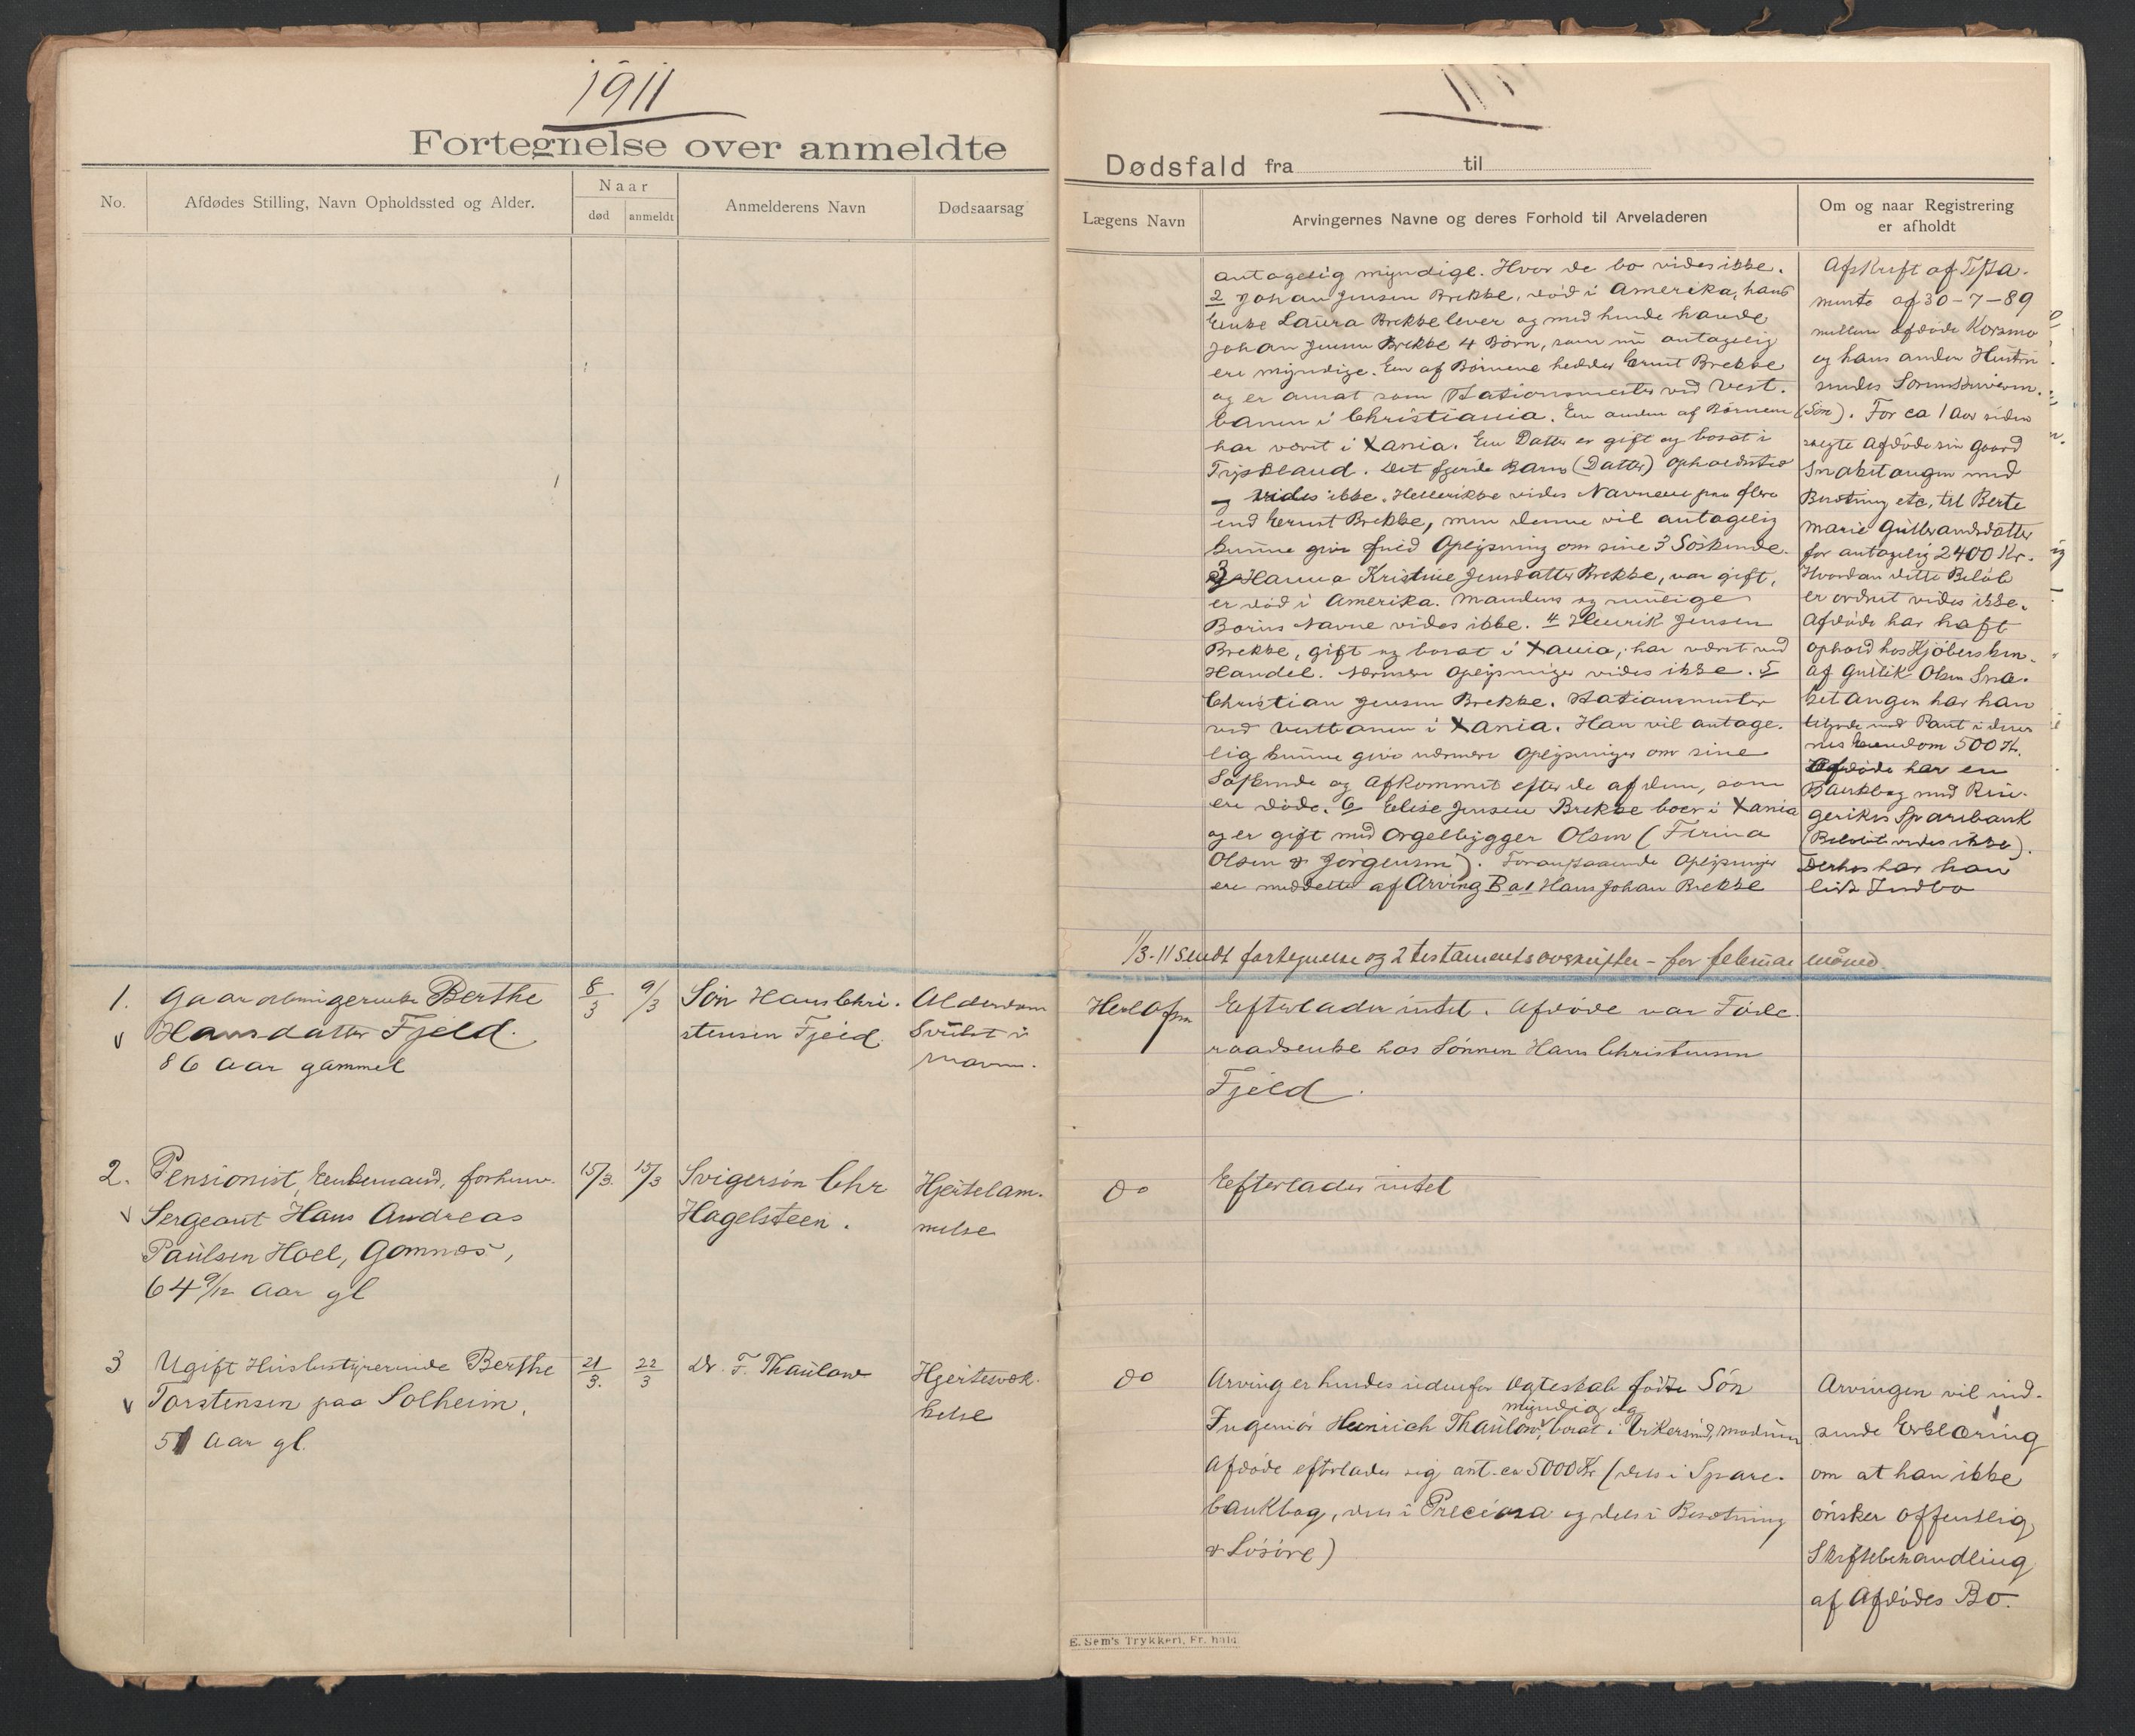 1911
Fortegnelse over anmeldte
No.
Afdødes Stilling, Navn Opholdssted og Alder.
Naar
død
anmeldt
Anmelderens Navn
Dødsaarsag
1.
Gaardbrugerenke Berthe
Hansdatter Fjeld.
86 Aar gammel
8/3
9/3
Søn Hans Chri-
stensen Fjeld
Alderdom
Svulst i
Maven.
2.
Pensionist, Enkemand, forhenv.
Sergeant Hans Andreas
Paulsen Hoel, Gomnæs,
64 9/12 Aar gl
15/3.
15/3
Svigersøn Chr
Hagelsteen.
Hjertelam-
melse
3
Ugift Husbestyrerinde Berthe
Torstensen paa Solheim,
51 Aar gl.
21/3.
22/3
Dr. F. Thaulow
Hjertesvæk-
kelse
Dødsfald fra til
Lægens Navn
Arvingernes Navne og deres Forhold til Arveladeren
Om og naar Registrering
er afholdt
antagelig myndige. Hvor de bo vides ikke.
2 Johan Jensen Brekke, død i Amerika, hans
Enke Laura Brekke lever og med hende havde
Johan Jensen Brekke 4 Børn, som nu antagelig
ere myndige. En af Børnene hedder Ernst Brekke
og er ansat som Stationsmester ved Vest-
banen i Christiania. En anden af Børnene (Søn)
har været i Xania. En Datter er gift og bosat i
Tyskland. Det fjerde Barn (Datter) Opholdssted
vides ikke. Hellerikke vides Navnene paa flere
end Ernst Brekke, men denne vil antagelig
kunne give fuld Oplysning om sine 3 Søskende.
3 Hanna Kristine Jensdatter Brekke, var gift,
er død i Amerika. Mandens og mulige
Børns Navne vides ikke. 4 Henrik Jensen
Brekke, gift og bosat i Xania, har været ved
Handel. Nærmere Oplysninger vides ikke. 5
Christian Jensen Brekke. Stationsmester
ved Vestbanen i Xania. Han vil antage-
lig kunne give nærmere Oplysninger om sine
Søskende og Afkommet efter de af dem, som
ere døde. 6 Elise Jensen Brekke boer i Xania
og er gift med Orgelbygger Olsen (Firma
Olsen & Jørgensen). Foranstaaende Oplysninger
ere meddelte af Arving B a 1 Hans Johan Brekke
Afskrift af Testa-
mente af 30-7-89
mellem afdøde Korsmo
og hans anden Hustru
sendes Sorenskriveren.
For ca 1 Aar siden
solgte Afdøde sin Gaard
Snabetangen med
Besætning etc, til Berte
Marie Gulbrandsdatter
for antagelig 2400 Kr.
Hvordan dette Beløb
er ordnet vides ikke.
Afdøde har haft
ophold hos Kjøbersken.
Af Gullik Olsen Sna-
betangen har han
tilgode med Pant i dennes
Eiendom 500 Kr.
Afdøde har en
Bankbog med Rin-
gerikes Sparebank
(Beløbet vides ikke).
Derhos har han
lidt Indbo
1/3-11 sendt fortegnelse og 2 testamentsavskrifter - for februar måned.
Herlofsen
Efterlader intet. Afdøde var Føde-
raadsenke hos Sønnen Hans Christensen
Fjeld.
Do
Efterlader intet
Do
Arving er hendes udenfor Ægteskab fødte Søn
myndig og
Ingeniør Heinrich Thaulow, bosat i Vikersund, Modum
Afdøde efterlader sig ant. ca 5000 Kr (dels i Spare-
bankbog, dels i Preciosa og dels i Besætning
& Løsøre)
Arvingen vil ind-
sende Erklæring
om at han ikke
ønsker offentlig
Skiftebehandling
af Afdødes Bo.
E. Sem's Trykkeri, Fr. hald